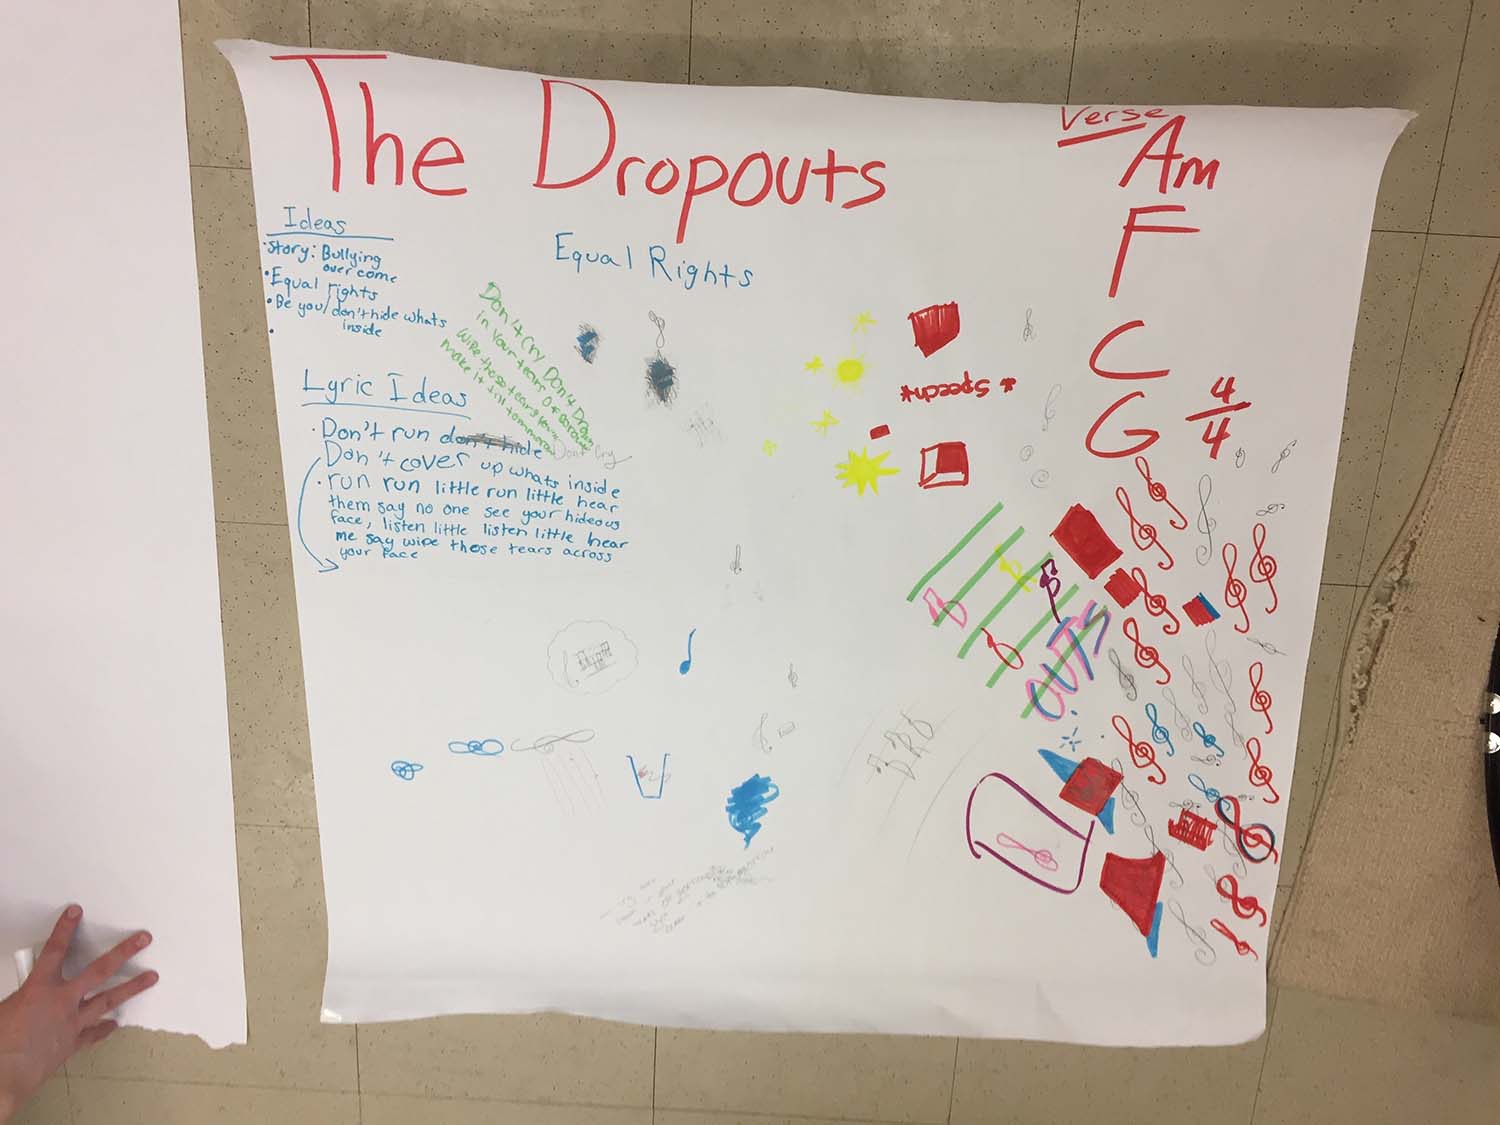 The Dropouts
Verse
Am
F
C
G
4/4
Ideas
• Story: Bullying
over come
• Equal rights
• Be you/don't hide whats
inside
•
Equal Rights
Don't Cry Don't Drown
in your tears of sorrow
Wipe those tears
make it till tommorow
Lyric Ideas
• Don't run don't hide
Don't Cry
Don't cover up whats inside
• run run little run little hear
them say no one see your hideous
face, listen little listen little hear
me say wipe those tears across
your face
* Speech *
OUTS
BRO